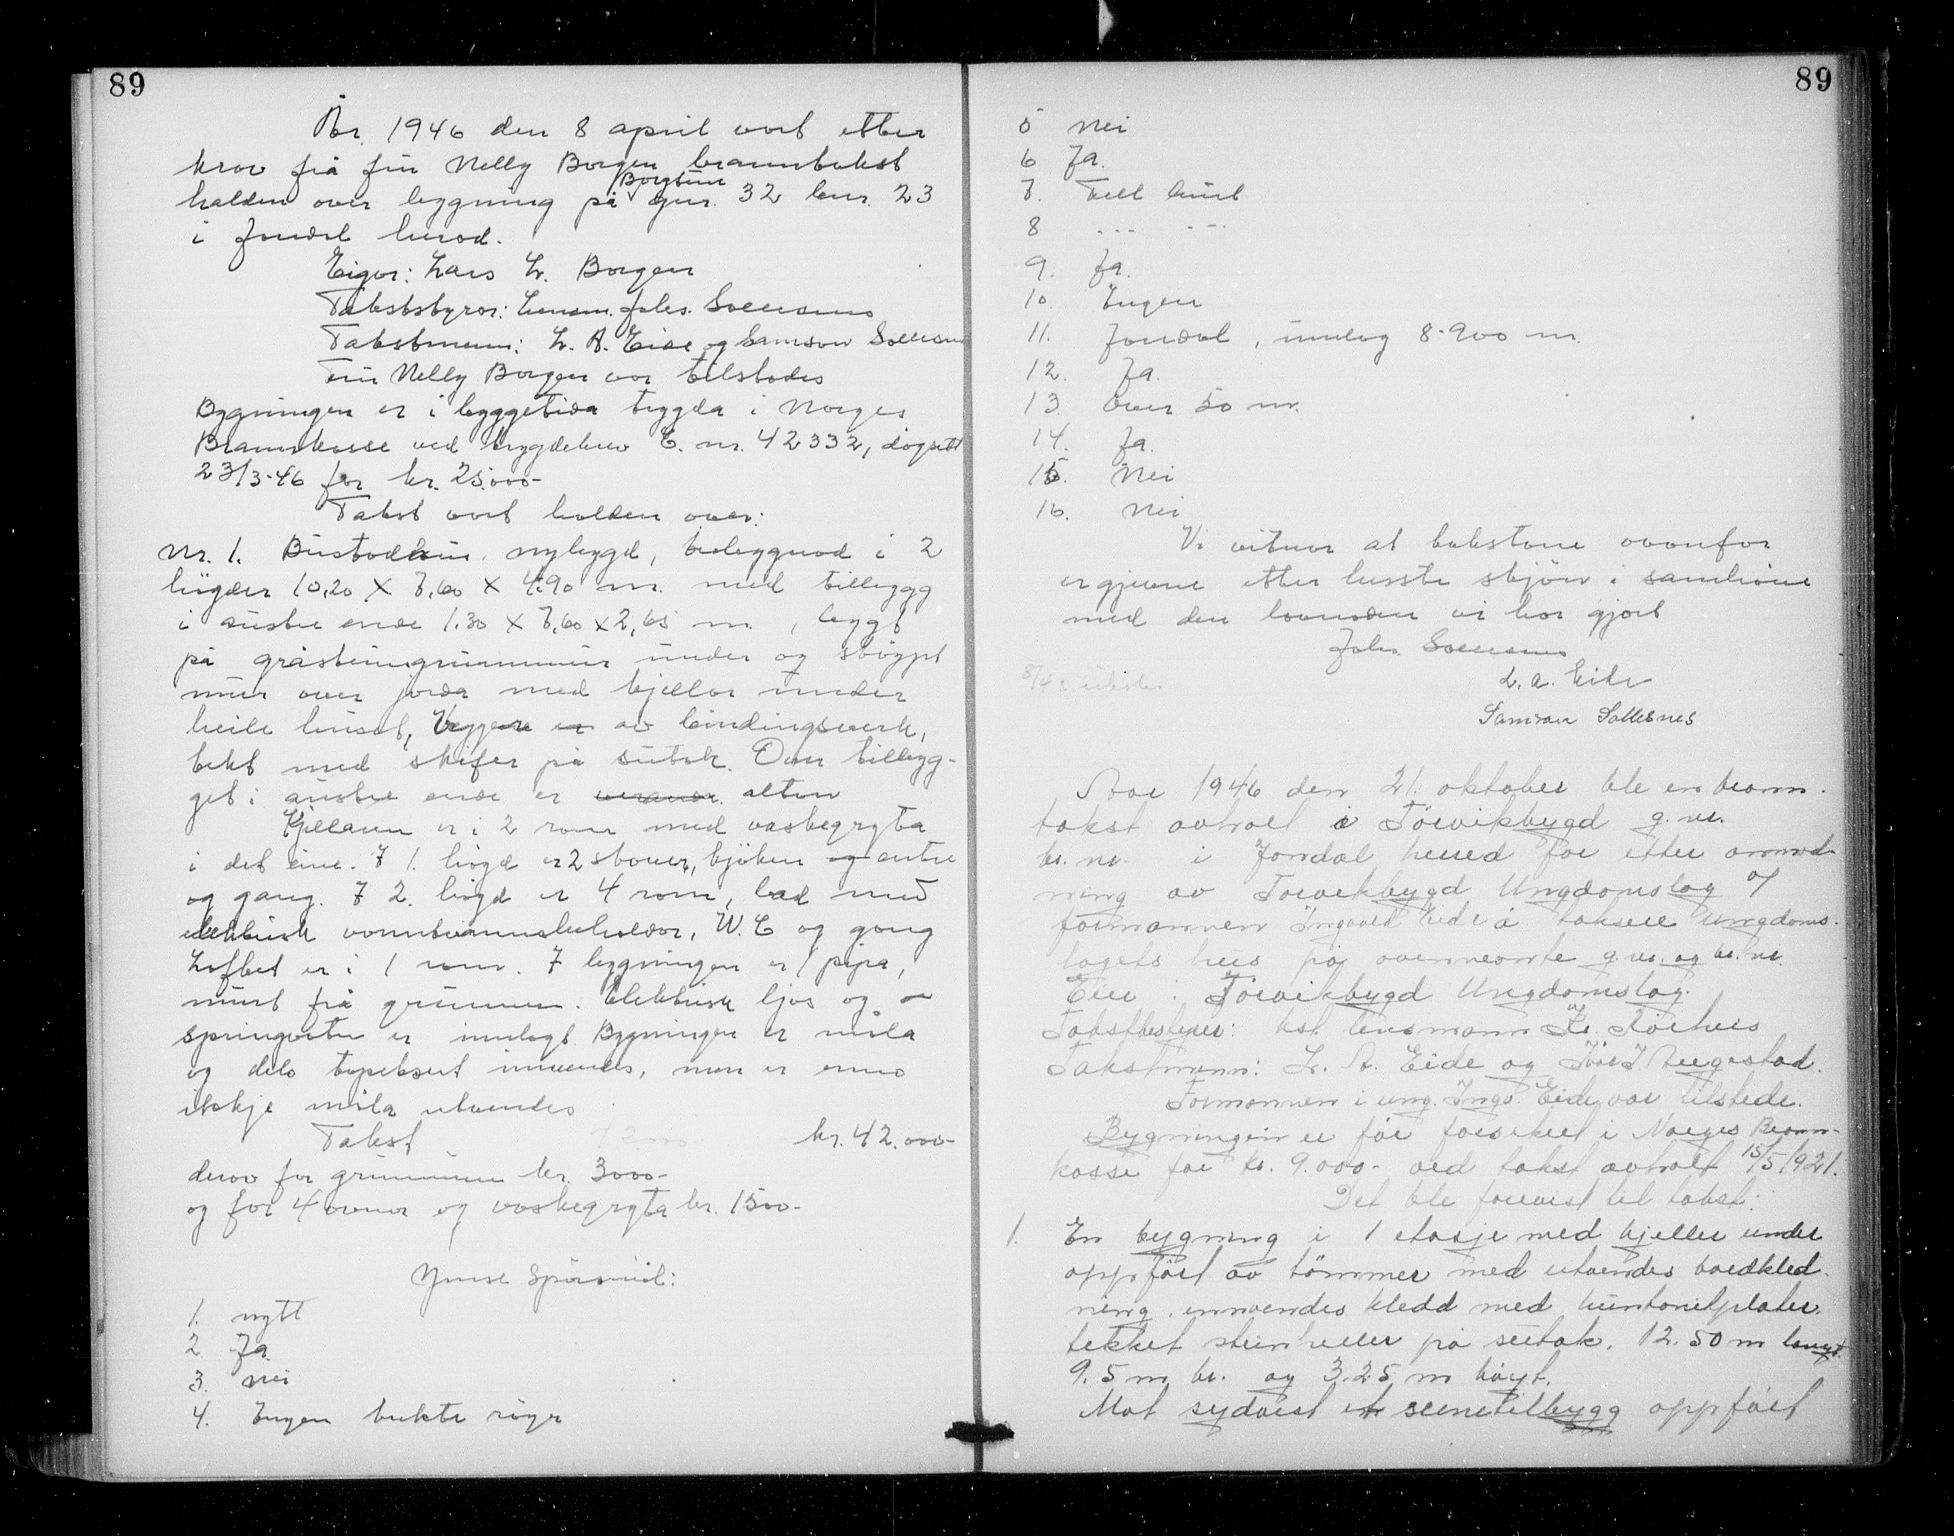 89
År 1946 den 8 april vert etter
krav frå fru Nelly Borgen branntakst
Borgtun
halden over bygning på gnr. 32 bnr. 23
i Jondal herad.
Eigar: Lars L. Borgen
Takststyrar: Lensm. Johs. Sollesnes
Takstmenn: L. A. Eide og Samson Sollesnes
Fru Nelly Borgen var tilstades
Bygningen er i byggetida trygda i Norges
Brannkasse ved trygdebrev C. nr. 42332, dagsett
23/3-46 for kr. 25.000-
Takst vert halden over:
Nr. 1. Bustadhus, nybygd, tvibygnad i 2
högder 10,20 X 7,60 X 4.90 m. med tilbygg
i austre ende 1.30 X 7,60 X 2,65 m, bygt
på gråsteingrunnmur under og støypt
mur over jorda med kjellar under
heile huset, Veggene er av bindingsverk,
tekt med skifer på sutak. Over tilbyg-
get i austre ende er veranda. altan
Kjellaren er i 2 rom med vaskegryta
i det eine. I 1. högd er 2 stover, kjöken og entre
og gang. I 2. högd er 4 rom, bad med
elektrisk varmtvannsbehaldar, W.C og gang
Loftet er i 1 rom. I bygningen er 1 pipa,
murt frå grunnen. Elektrisk ljos og
springvatn er innlagt. Bygningen er måla
og dels tapetsert innvendes, men er enno
ikkje måla utvendes
Takst kr. 42.000-
derav for grunnmur kr. 3000-
og for 4 ovner og vaskegryta kr. 1500-
Ymse Spörsmål:
1. nytt
2 Ja
3. nei
4. Ingen brukte röyr
89
5 Nei
6 Ja.
7. Fell burt
8 --- ---
9. Ja.
10. Ingen
11. Jondal, innlag 8-900 m.
12. Ja.
13. Over 50 m.
14. Ja.
15. Nei
16. Nei
Vi vitnar at takstane ovanfor
er gjevne etter beste skjön i samhöve
med den lovnaden vi har gjort
Johs. Sollesnes
L. A. Eide
Samson Sollesnes
Aar 1946 den 21. oktober ble en brann-
takst avholt i Törvikbygd g. nr.
br. nr. i Jondal herred for etter anmod-
ning av Törvikbygd Ungdomslag v/
formannen Ingvald Eide å taksere ungdoms-
lagets hus på ovennevnte g.nr. og br.nr
Eier: Törvikbygd Ungdomslag.
Takstbestyrer: kst. lensmann
Takstmenn: L. A. Eide og
Formannen i ung. Ingv. Eide var tilstede.
Bygningen er för forsikret i Norges Brann-
kasse for kr. 9.000- ved takst avholt 15/5 1921.
Det ble forevist til takst:
1. En bygning i 1 etasje med kjeller under
oppfört av tömmer med utvendes bordkled-
ning innvendes kledd med huntonitplater.
tekket steinheller på sutak. 12.50 m langt.
9.5 m br. og 3.25 m höyt.
Mot sydvest et scenetilbygg oppfört